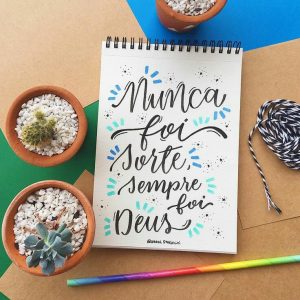 Nunca
foi
sorte,
sempre
foi
Deus